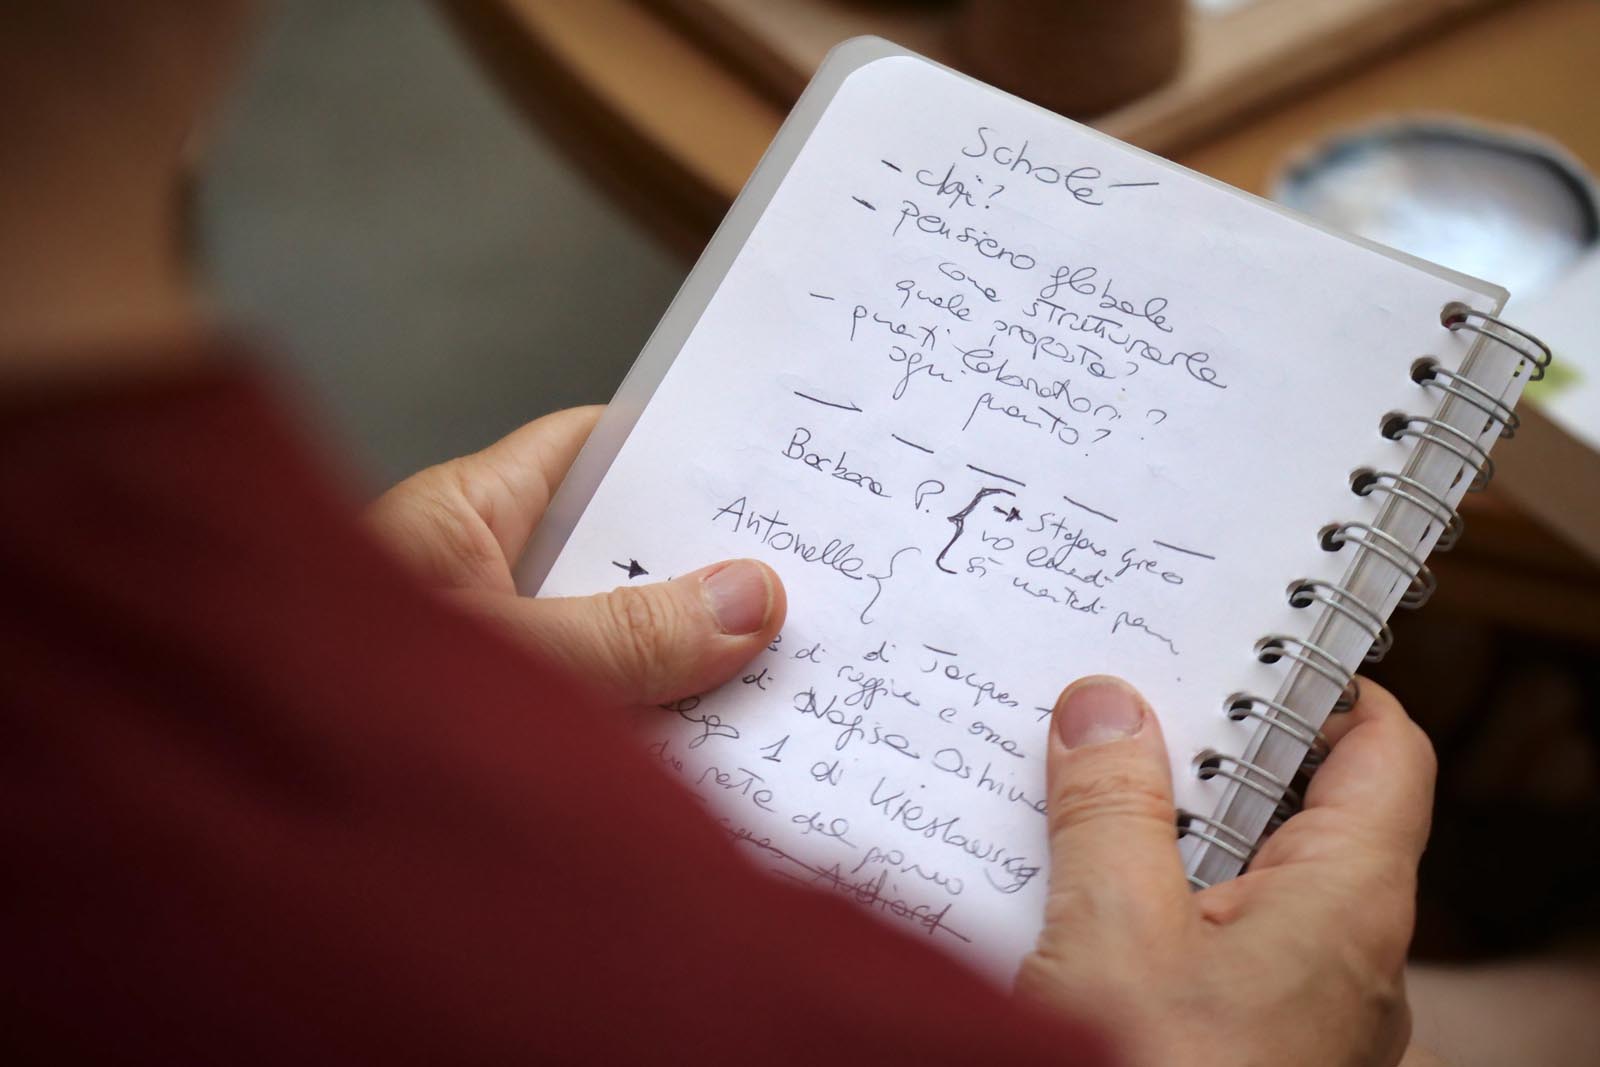 Scholé
- chi?
- pensiero globale
come strutturarle
quale proposta?
- quanti laboratori?
ogni quanto?
Barbara P. { → Stefano Greco
no lunedì
sì martedì pom
Antonella {
→
di Jacques
e di raggiu e one
di Nafisa Oshine
1 di Kieslowsky
parte del primo
Audiard